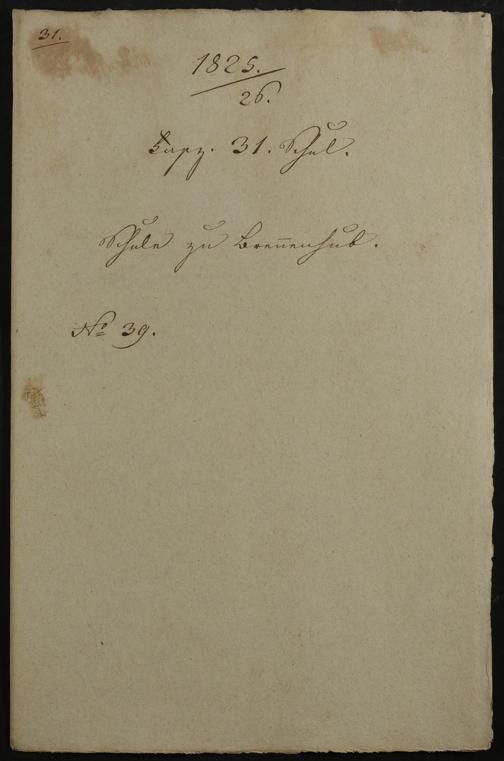 31.
1825.
26.
Kapz. 31. Schul.
Schule zu Brennenhub.
No 39.